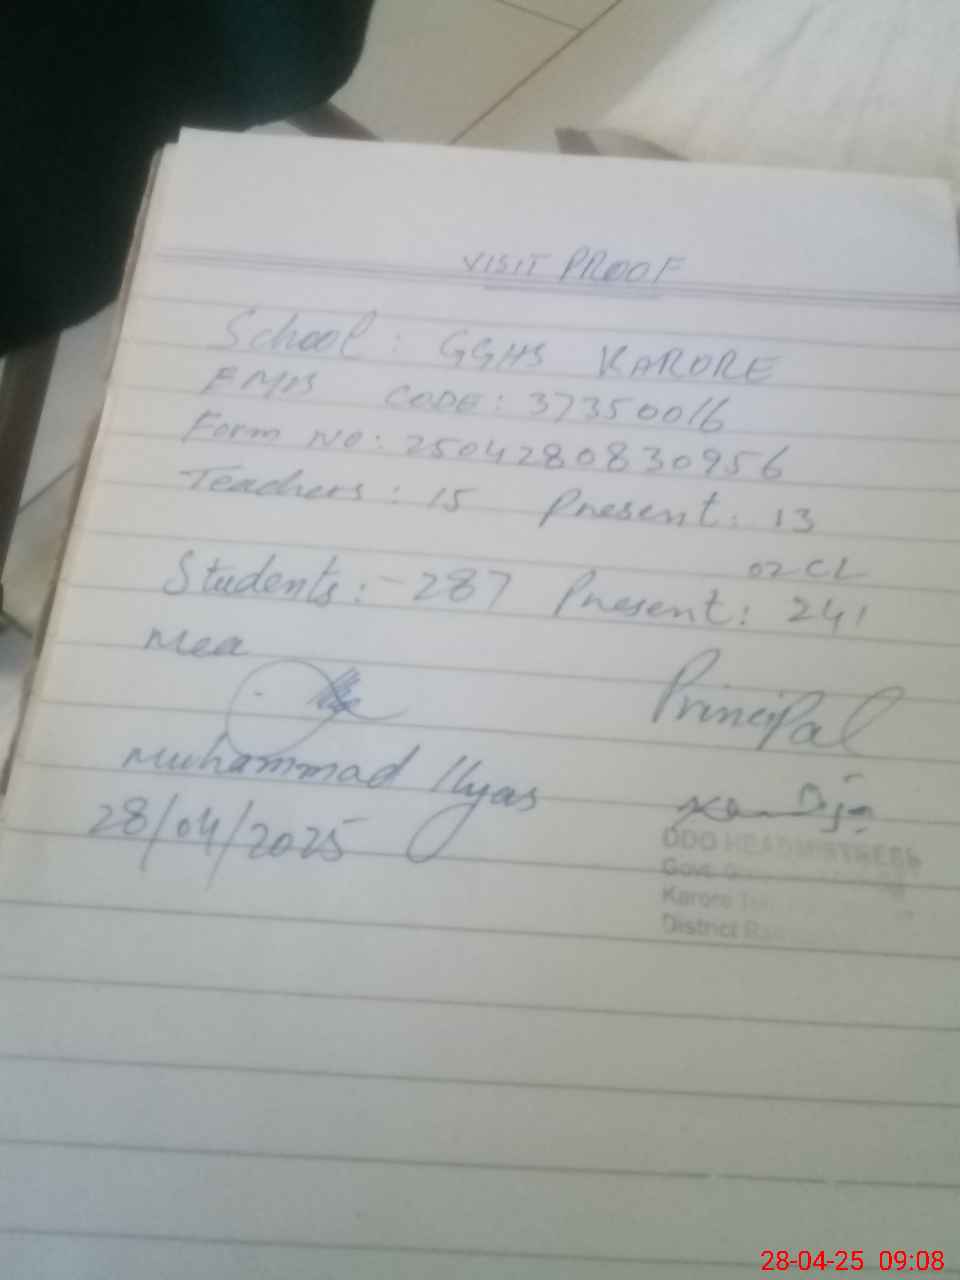 VISIT PROOF
School: GGHS KARORE
EMIS CODE: 37350016
Form NO: 2504280830956
Teachers: 15 Present: 13
02 CL
Students:- 287 Present: 241
Mea
Principal
Muhammad Ilyas
28/04/2025
DDO HEADMISTRESS
Govt. G
Karore Teh
District Ra
28-04-25 09:08